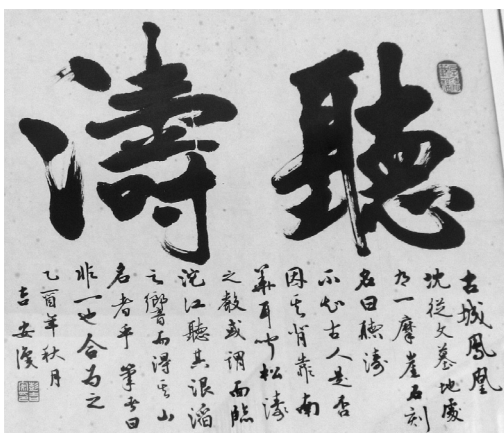 聽濤
古城鳳凰
沈從文墓地處
有一摩崖石刻
名曰聽濤
不知古人是否
因其背靠南
華耳聞松濤
之聲或謂面臨
沱江聽其浪滔
之響而得其山
名者乎筆者曰
非一也合為之
乙酉年秋月
吉安